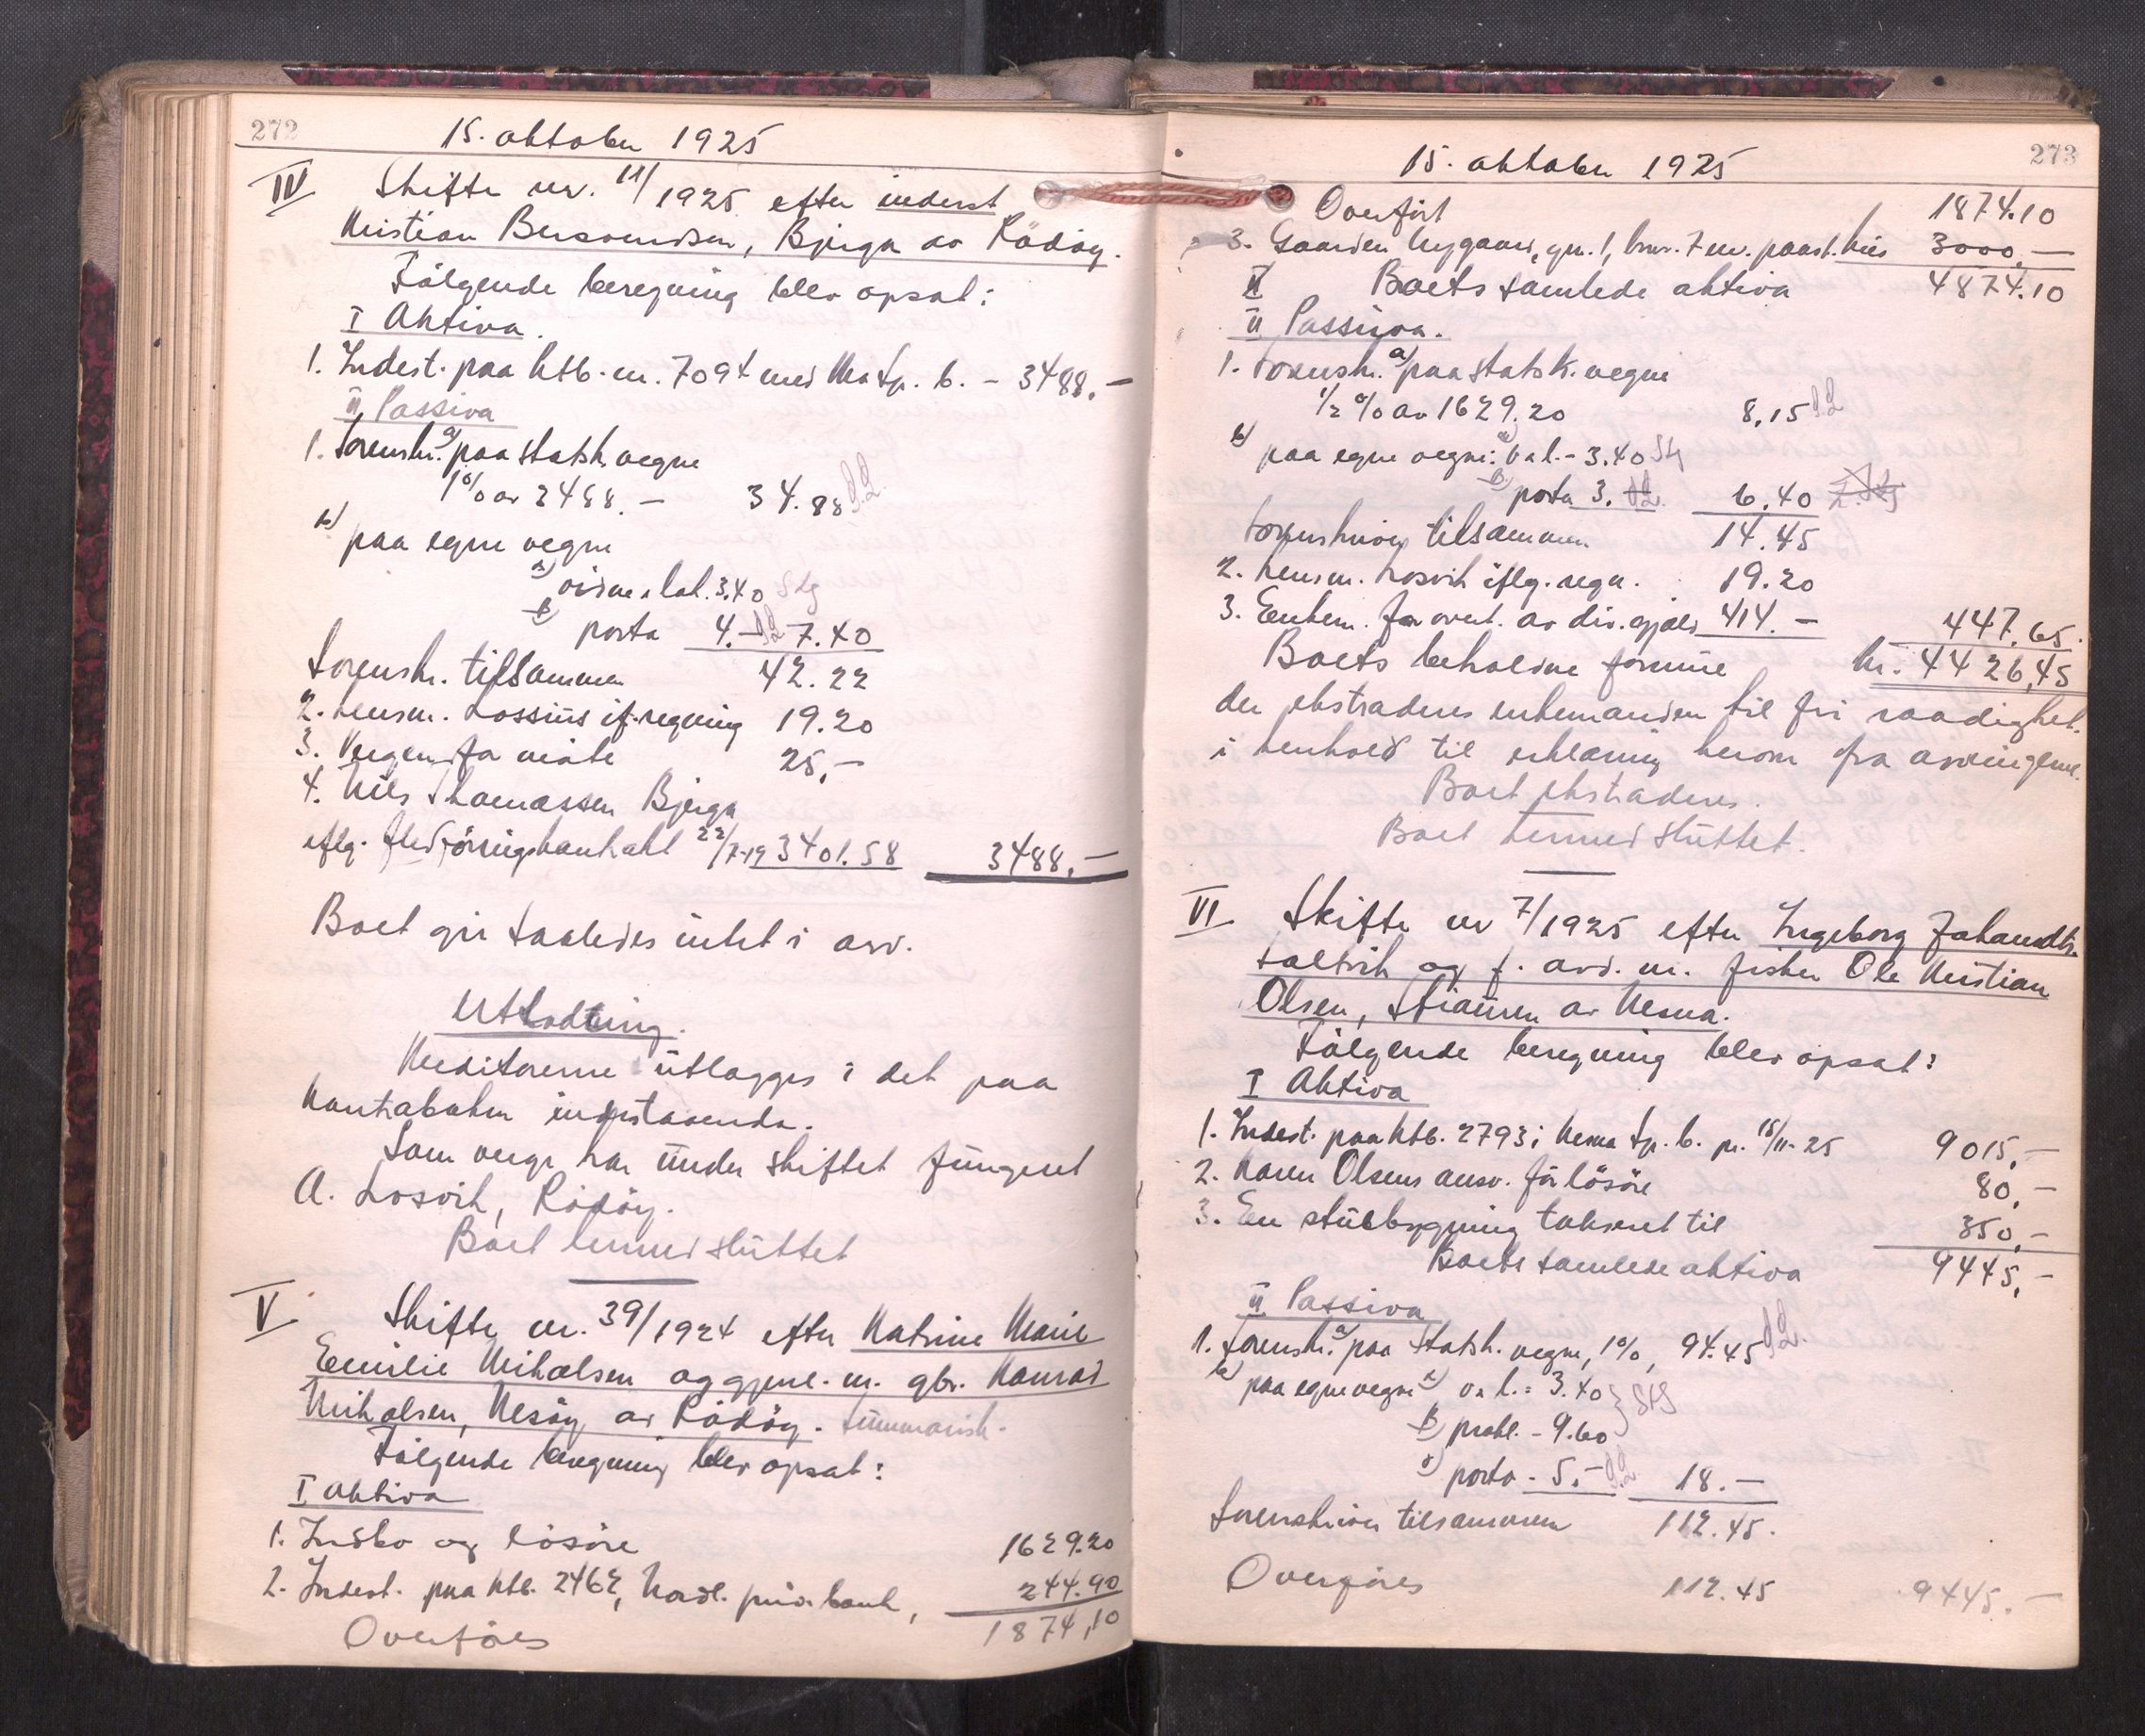 272
15. oktober 1925
IV Skifte nr. 11/1925 efter inderst
Kristian Berentsen, Bjerga av Rödöy.
Fölgende beregning blev opsat:
I Aktiva.
1. Indest. paa ktb. nr. 7094 med Mo Sp. b. - 3488,-
II Passiva
1. Sorenskr. a) paa statsk. vegne
1% av 3488.- 34.88
b) paa egne vegne
a) vidne lal. 3.40 Stg
B porto 4.- 7.40
Sorenskr. tilsammen 42.22
2. Lensm. Lossius if. regning 19.20
3. Vergen for möte 25,-
4. Nils Thomassen Bjerga
iflg. fledföringskontrakt 22/7-19 3401.58 3488,-
Boet gir saaledes intet i arv.
Utlodning.
Kreditorerne utlægges i det paa
kontraboken indestaaende.
Som verge har under skiftet fungeret
A. Losvik, Rödöy.
Boet hermed sluttet
V Skifte nr. 39/1924 efter Katrine Marie
Emilie Mikalsen og gjenl. m. gbr. Konrad
Mikalsen, Nesöy av Rödöy. Summarisk.
Fölgende beregning blev opsat:
I Aktiva
1. Indbo og lösöre 1629.20
2. Indest. paa ktb. 2462, Nordl. priv. bank, 244.90
Overföres 1874,10
273
15. oktober 1925
Overfört 1874.10
3. Gaarden Nygaard, gn. 1, brnr. 7 m. paast. hus 3000,-
Boets samlede aktiva 4874.10
II Passiva.
1. Sorenskr. a) paa statsk. vegne
1/2 % av 1629.20 8,15
b) paa egne vegne: a) v. l. - 3.40 Stg
B) porto 3. 6.40
Sorenskriver tilsammen 14.45
2. Lensm. Losvik iflg. regn. 19.20
3. Enkem. for overt. av div. gjæld 414.- 447.65.
Boets beholdne formue kr. 4426,45
der ekstraderes enkemanden til fri raadighet
i henhold til erklæring herom fra arvingerne.
Boet ekstraderes.
Boet hermed sluttet.
VI Skifte nr 7/1925 efter Ingeborg Johansdtr.
Saltvik og f. avd. m. fisker Ole Kristian
Olsen, Straumen av Nesna.
Fölgende beregning blev opsat:
I Aktiva
1. Indest. paa ktb. 2793 i Nesna Sp. b. pr. 15/11-25 9015,-
2. Karen Olsens ansv. for lösöre 80,-
3. En stuebygning taksert til 350,-
Boets samlede aktiva 9445,-
II Passiva
1. Sorenskr. a) paa Statsk. vegne, 1%, 94.45
b) paa egne vegne a) v. l. = 3.40 } Stg
B) prokl. - 9.60
porto - 5.- 18.-
Sorenskriver tilsammen 112.45.
Overföres 112.45 9445.-